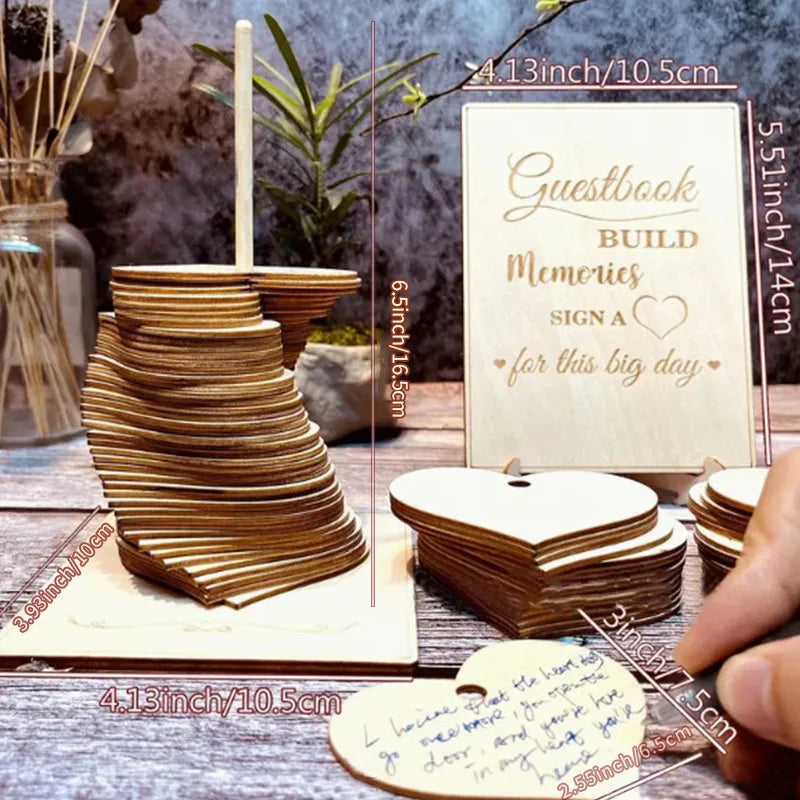 4.13inch/10.5cm
Guestbook
BUILD
Memories
SIGN A
for this big day
5.51inch/14cm
6.5inch/16.5cm
3.93inch/10cm
4.13inch/10.5cm
3inch/7.5cm
2.55inch/6.5cm
that the heart
go once more, you open the
door, and you're here
in my heart